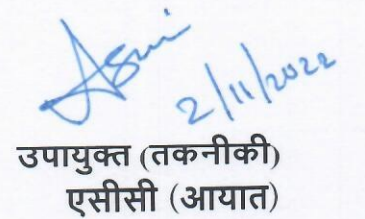 2/11/2022
उपायुक्त (तकनीकी)
एसीसी (आयात)